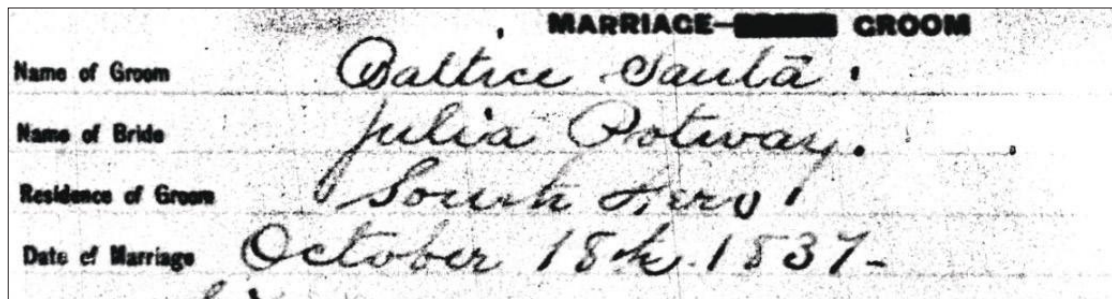 MARRIAGE— GROOM
Name of Groom Baltice Santā.
Name of Bride Julia Potway.
Residence of Groom South Hero
Date of Marriage October 18th 1837-